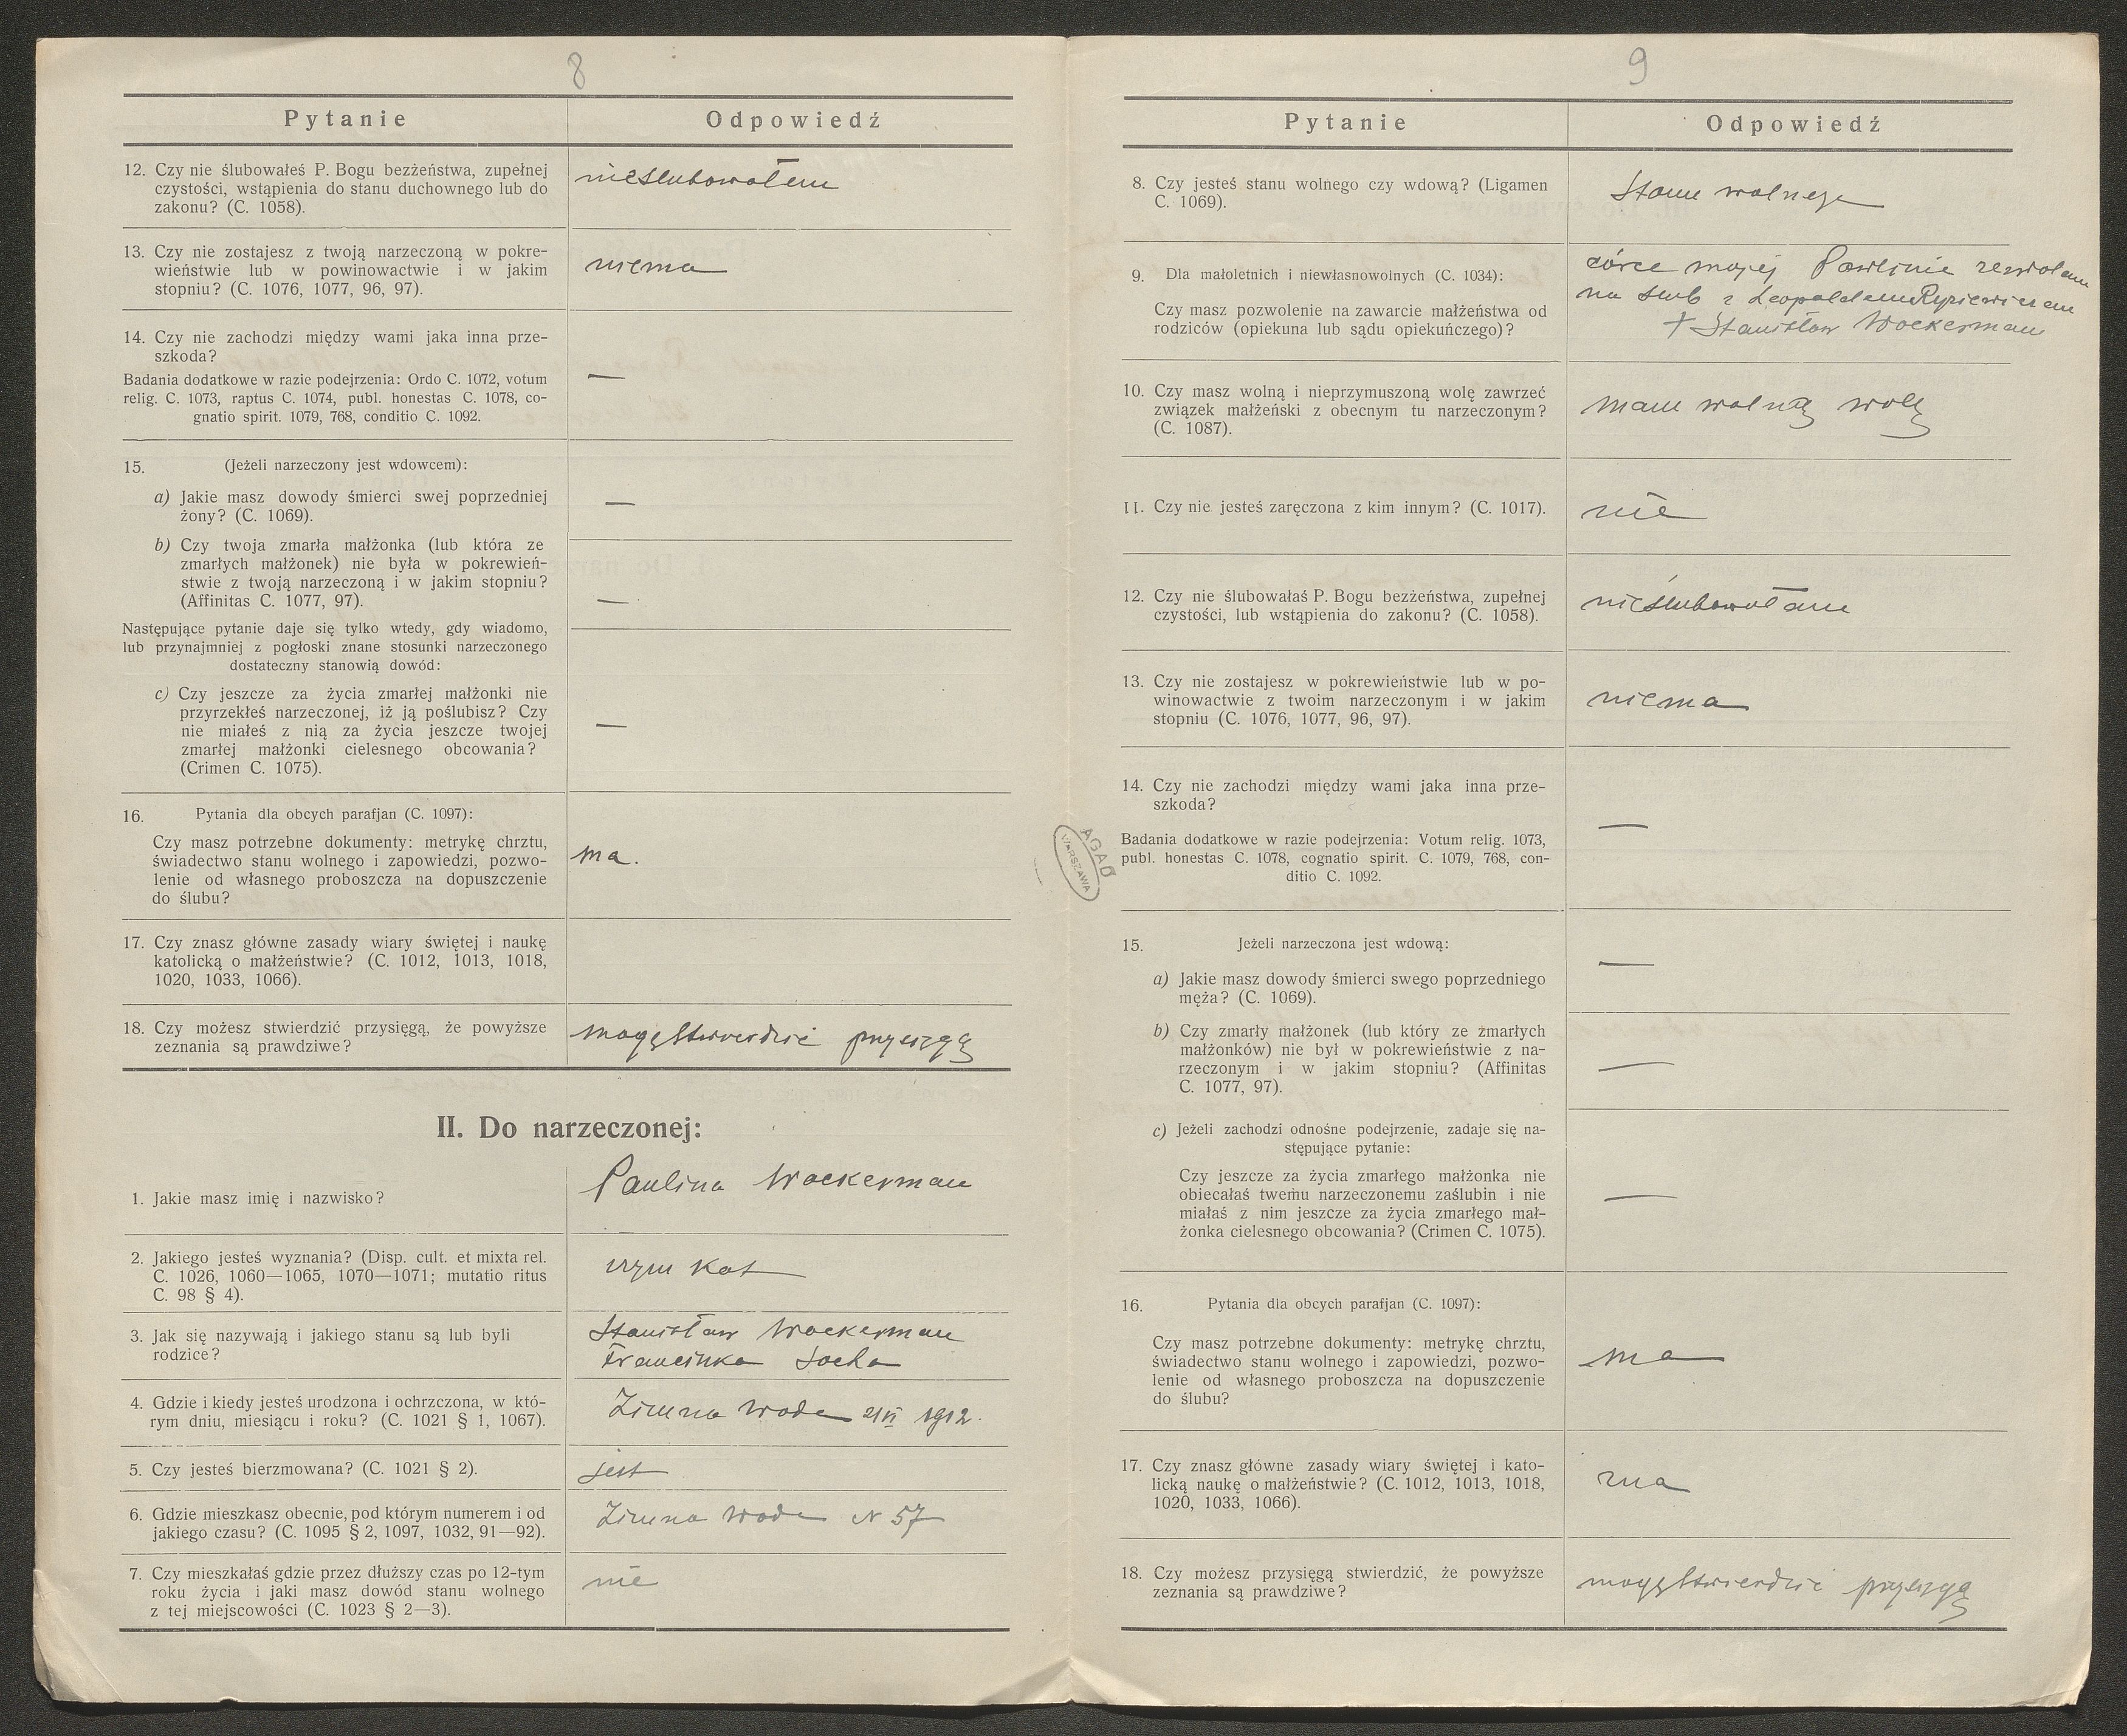 8
Pytanie
Odpowiedź
12. Czy nie ślubowałeś P. Bogu bezżeństwa, zupełnej
czystości, wstąpienia do stanu duchownego lub do
zakonu? (C. 1058).
nieślubowałem
13. Czy nie zostajesz z twoją narzeczoną w pokre-
wieństwie lub w powinowactwie i w jakim
stopniu? (C. 1076, 1077, 96, 97).
niema
14. Czy nie zachodzi między wami jaka inna prze-
szkoda?
Badania dodatkowe w razie podejrzenia: Ordo C. 1072, votum
relig. C. 1073, raptus C. 1074, publ. honestas C. 1078, co-
gnatio spirit. 1079, 768, conditio C. 1092.
—
15. (Jeżeli narzeczony jest wdowcem):
a) Jakie masz dowody śmierci swej poprzedniej
żony? (C. 1069).
—
b) Czy twoja zmarła małżonka (lub która ze
zmarłych małżonek) nie była w pokrewień-
stwie z twoją narzeczoną i w jakim stopniu?
(Affinitas C. 1077, 97).
—
Następujące pytanie daje się tylko wtedy, gdy wiadomo,
lub przynajmniej z pogłoski znane stosunki narzeczonego
dostateczny stanowią dowód:
c) Czy jeszcze za życia zmarłej małżonki nie
przyrzekłeś narzeczonej, iż ją poślubisz? Czy
nie miałeś z nią za życia jeszcze twojej
zmarłej małżonki cielesnego obcowania?
(Crimen C. 1075).
—
16. Pytania dla obcych parafjan (C. 1097):
Czy masz potrzebne dokumenty: metrykę chrztu,
świadectwo stanu wolnego i zapowiedzi, pozwo-
lenie od własnego proboszcza na dopuszczenie
do ślubu?
ma.
17. Czy znasz główne zasady wiary świętej i naukę
katolicką o małżeństwie? (C. 1012, 1013, 1018,
1020, 1033, 1066).
18. Czy możesz stwierdzić przysięgą, że powyższe
zeznania są prawdziwe?
mogę stwierdzić przysięgą
II. Do narzeczonej:
1. Jakie masz imię i nazwisko?
Paulina Wockerman
2. Jakiego jesteś wyznania? (Disp. cult. et mixta rel.
C. 1026, 1060—1065, 1070—1071; mutatio ritus
C. 98 § 4).
rzym kat
3. Jak się nazywają i jakiego stanu są lub byli
rodzice?
Stanisław Wockerman
Franciszka Socha
4. Gdzie i kiedy jesteś urodzona i ochrzczona, w któ-
rym dniu, miesiącu i roku? (C. 1021 § 1, 1067).
Zimna Woda 21 VI 1912.
5. Czy jesteś bierzmowana? (C. 1021 § 2).
jest
6. Gdzie mieszkasz obecnie, pod którym numerem i od
jakiego czasu? (C. 1095 § 2, 1097, 1032, 91—92).
Zimna Woda N 57
7. Czy mieszkałaś gdzie przez dłuższy czas po 12-tym
roku życia i jaki masz dowód stanu wolnego
z tej miejscowości (C. 1023 § 2—3).
nie
9
Pytanie
Odpowiedź
8. Czy jesteś stanu wolnego czy wdową? (Ligamen
C. 1069).
Stanu wolnego
9. Dla małoletnich i niewłasnowolnych (C. 1034):
Czy masz pozwolenie na zawarcie małżeństwa od
rodziców (opiekuna lub sądu opiekuńczego)?
córce mojej Paulinie zezwalam
na ślub z Leopoldem
+ Stanisław Wockerman
10. Czy masz wolną i nieprzymuszoną wolę zawrzeć
związek małżeński z obecnym tu narzeczonym?
(C. 1087).
mam wolną wolę
11. Czy nie jesteś zaręczona z kim innym? (C. 1017).
nie
12. Czy nie ślubowałaś P. Bogu bezżeństwa, zupełnej
czystości, lub wstąpienia do zakonu? (C. 1058).
nieślubowałam
13. Czy nie zostajesz w pokrewieństwie lub w po-
winowactwie z twoim narzeczonym i w jakim
stopniu (C. 1076, 1077, 96, 97).
niema
14. Czy nie zachodzi między wami jaka inna prze-
szkoda?
Badania dodatkowe w razie podejrzenia: Votum relig. 1073,
publ. honestas C. 1078, cognatio spirit. C. 1079, 768, con-
ditio C. 1092.
—
AGAD
WARSZAWA
15. Jeżeli narzeczona jest wdową:
—
a) Jakie masz dowody śmierci swego poprzedniego
męża? (C. 1069).
b) Czy zmarły małżonek (lub który ze zmarłych
małżonków) nie był w pokrewieństwie z na-
rzeczonym i w jakim stopniu? (Affinitas
C. 1077, 97).
—
c) Jeżeli zachodzi odnośne podejrzenie, zadaje się na-
stępujące pytanie:
Czy jeszcze za życia zmarłego małżonka nie
obiecałaś twemu narzeczonemu zaślubin i nie
miałaś z nim jeszcze za życia zmarłego mał-
żonka cielesnego obcowania? (Crimen C. 1075).
—
16. Pytania dla obcych parafjan (C. 1097):
Czy masz potrzebne dokumenty: metrykę chrztu,
świadectwo stanu wolnego i zapowiedzi, pozwo-
lenie od własnego proboszcza na dopuszczenie
do ślubu?
ma
17. Czy znasz główne zasady wiary świętej i kato-
licką naukę o małżeństwie? (C. 1012, 1013, 1018,
1020, 1033, 1066).
zna
18. Czy możesz przysięgą stwierdzić, że powyższe
zeznania są prawdziwe?
mogę stwierdzić przysięgą